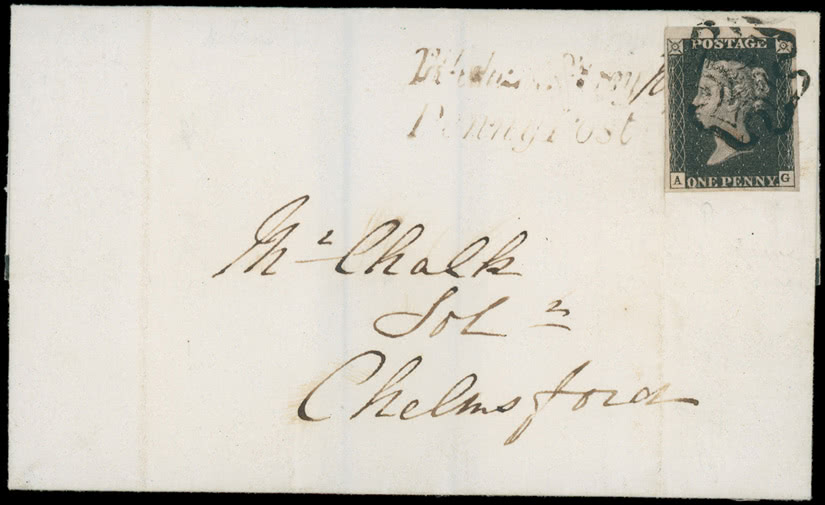 POSTAGE
Penny Post
A ONE PENNY. G
Mr Chalk
Solr
Chelmsford